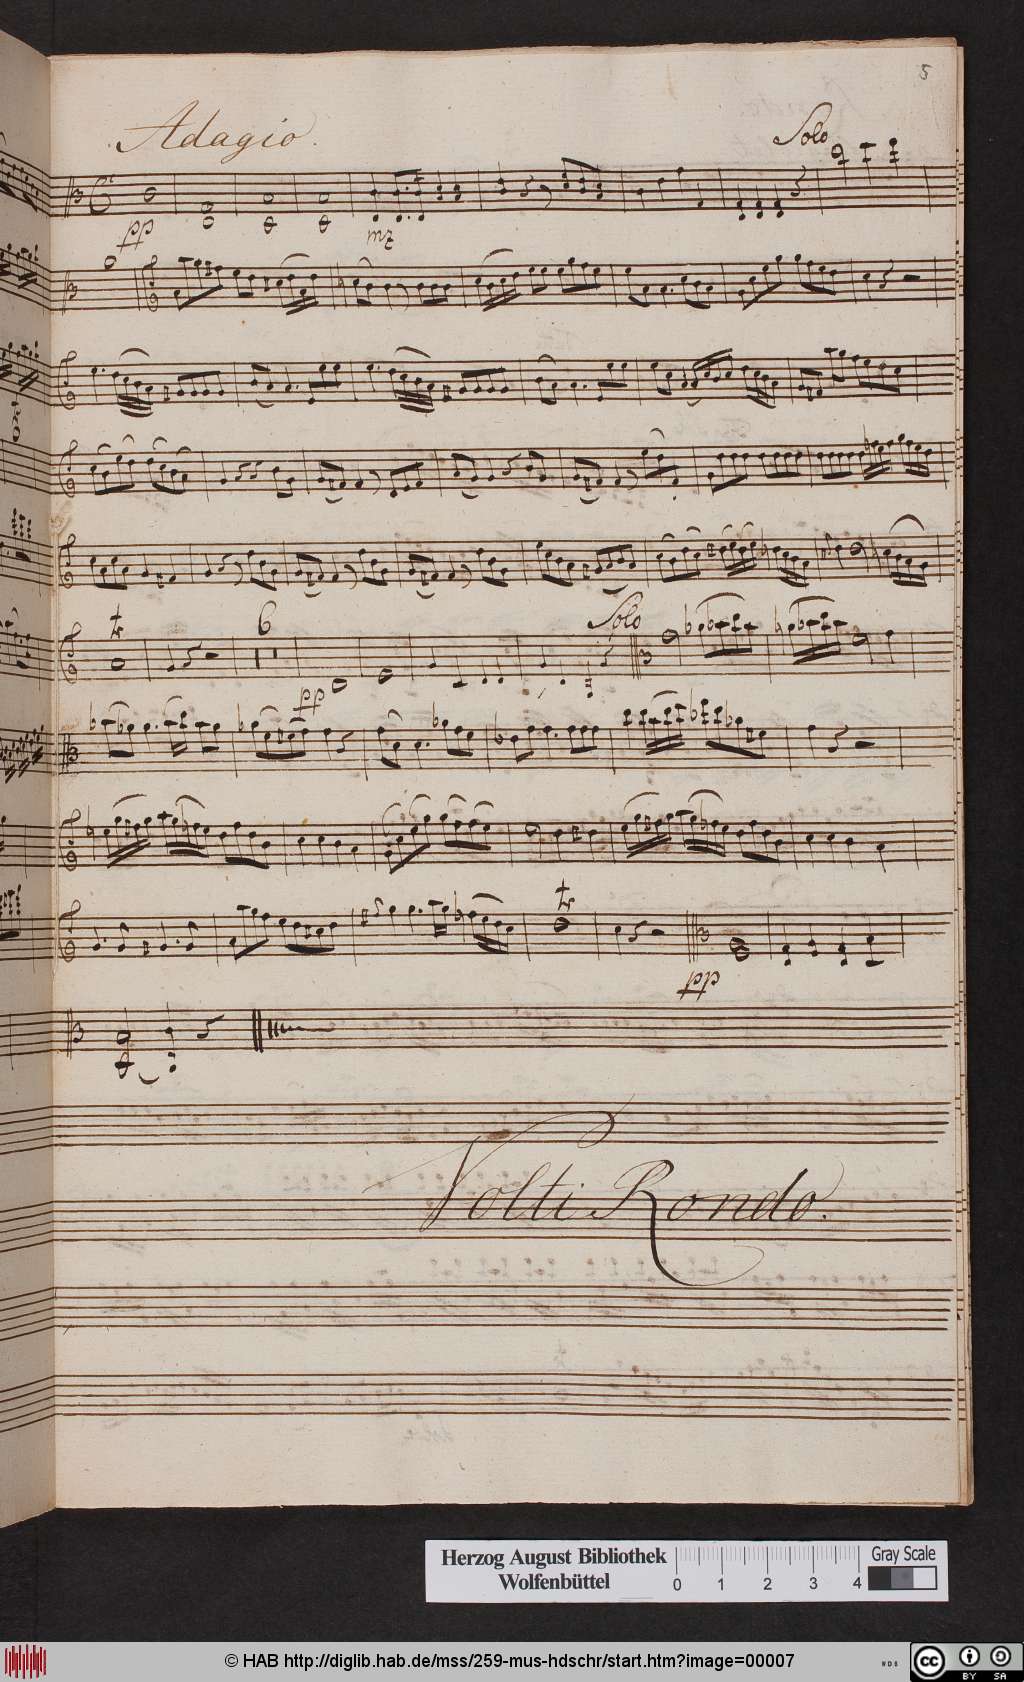 5
Adagio.
Solo
pp
mz
tr
6
Solo
pp
tr
pp
Volti Rondo.
Herzog August Bibliothek
Wolfenbüttel
0 1 2 3 4
Gray Scale
© HAB http://diglib.hab.de/mss/259-mus-hdschr/start.htm?image=00007
WDB
cc BY SA